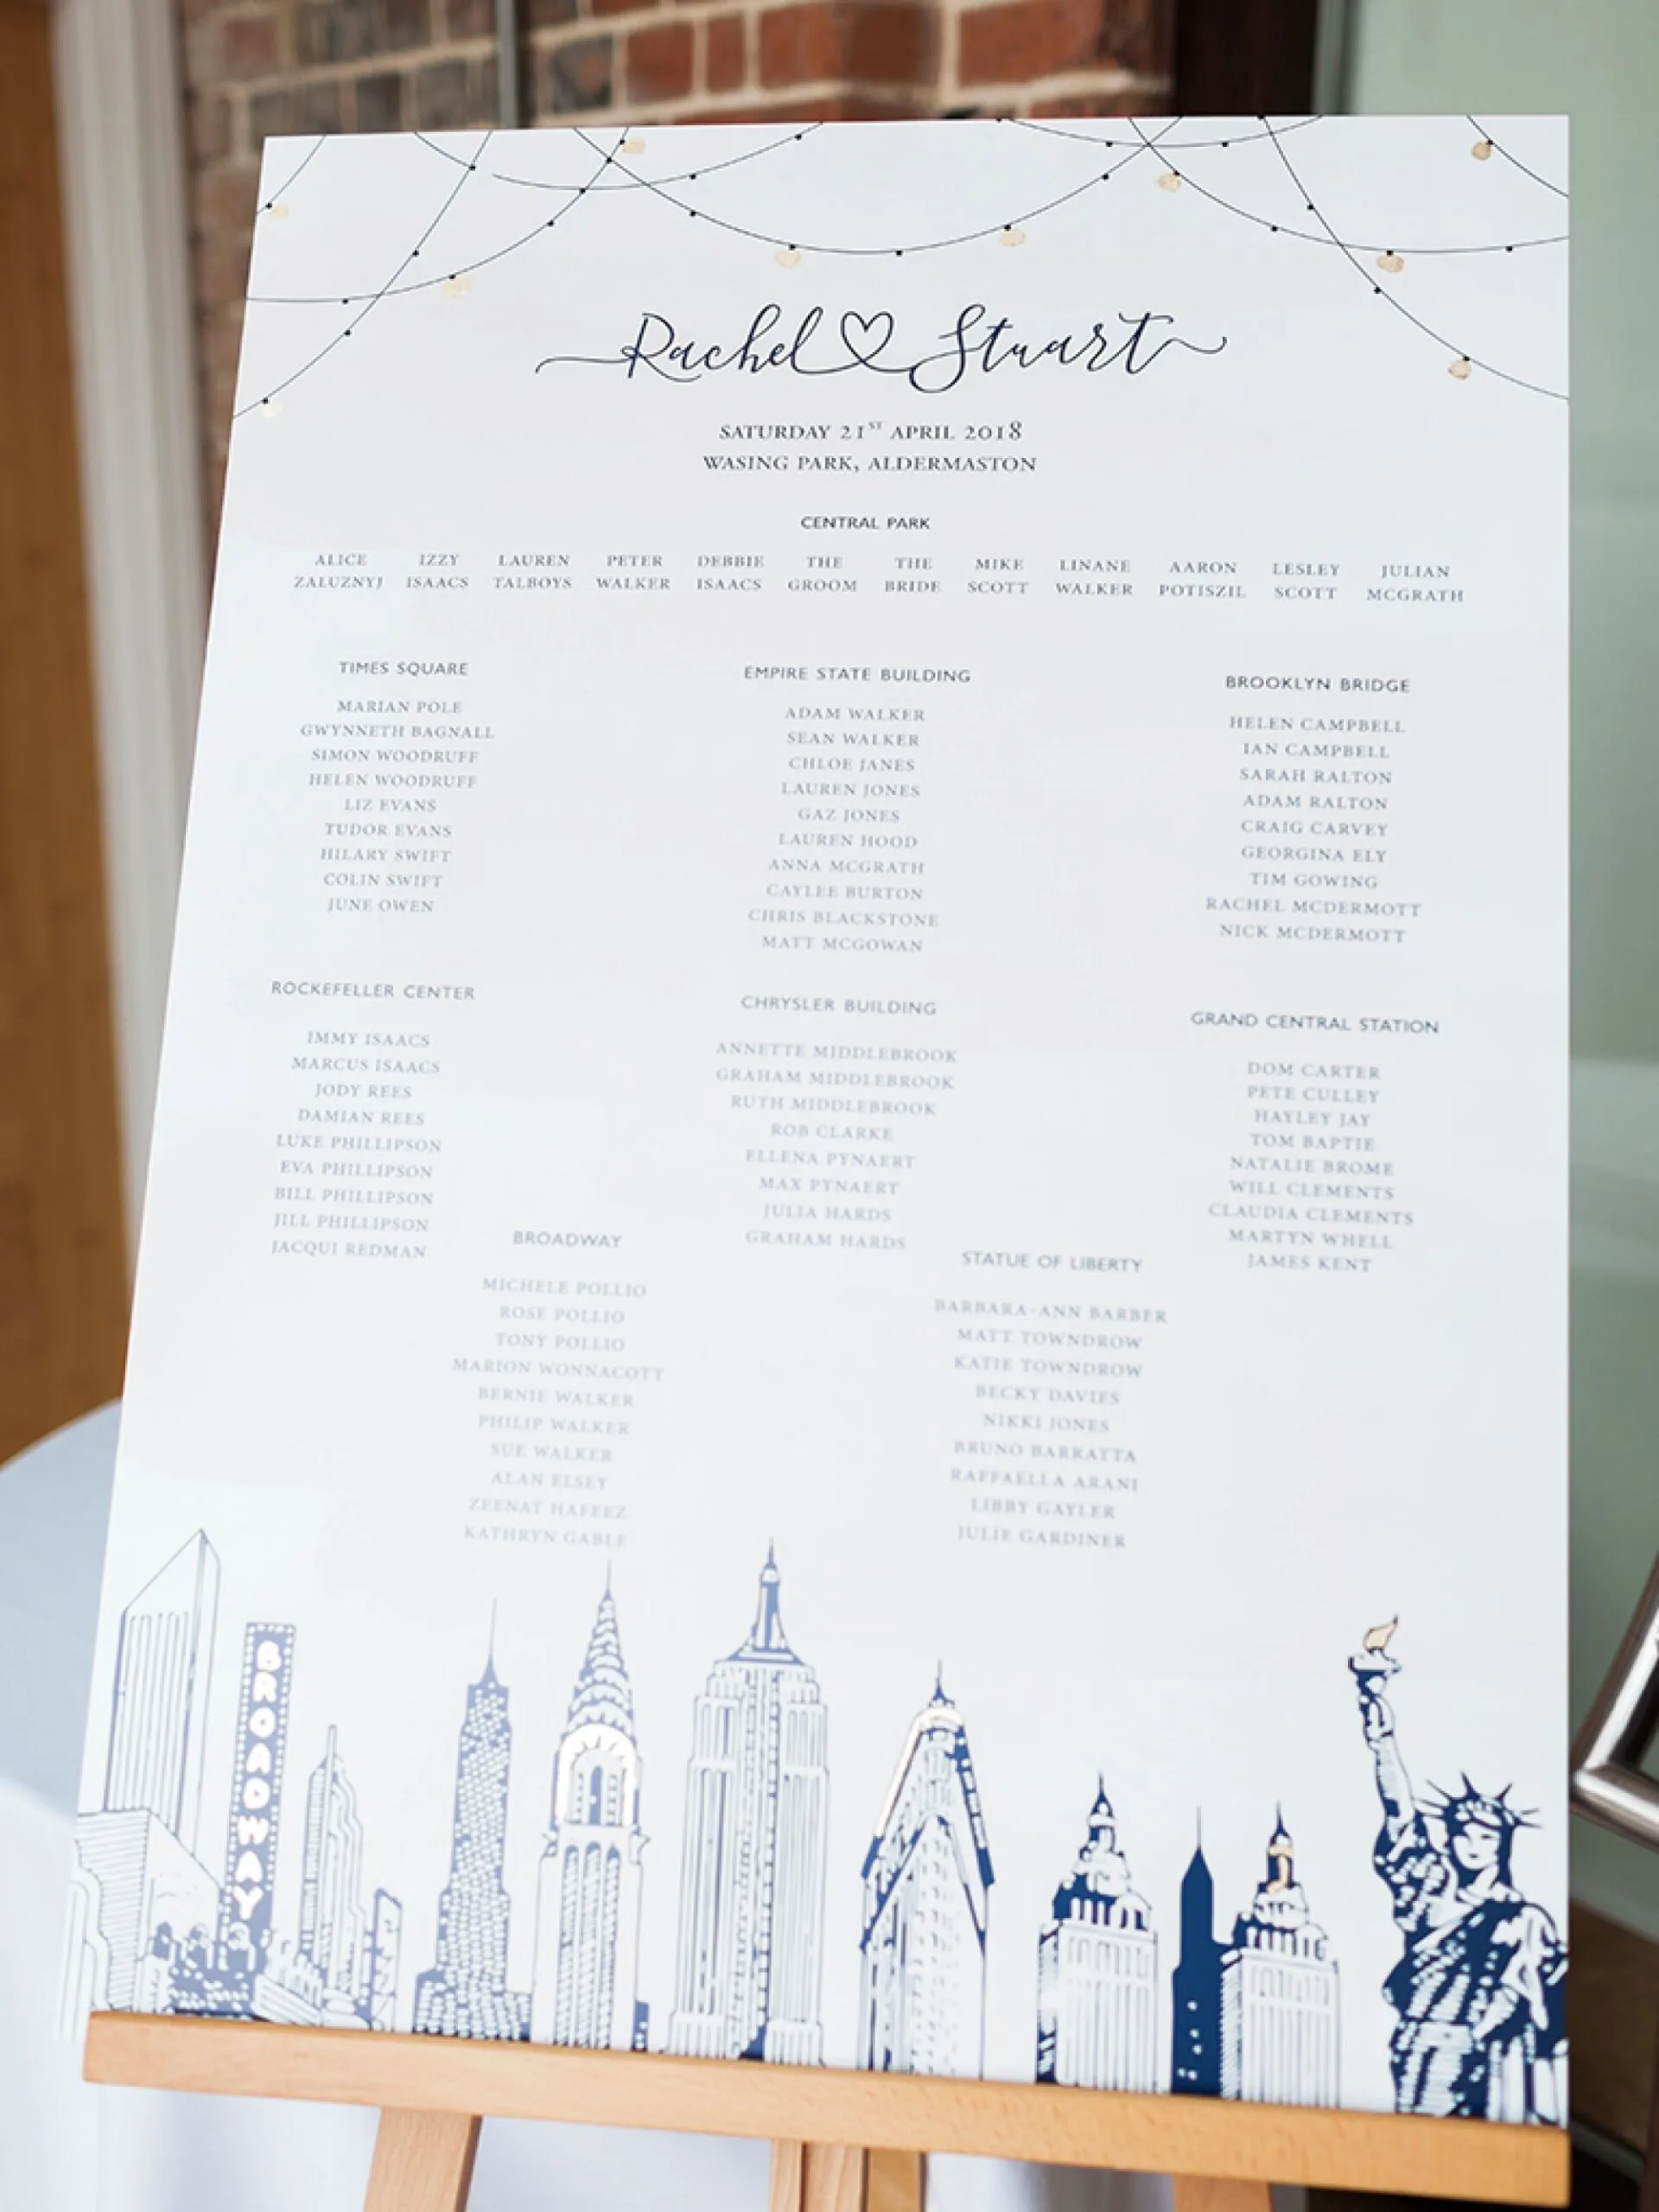 Rachel Stuart
SATURDAY 21ST APRIL 2018
WASING PARK, ALDERMASTON
CENTRAL PARK
ALICE ZALUZNYJ
IZZY ISAACS
LAUREN TALBOYS
PETER WALKER
DEBBIE ISAACS
THE GROOM
THE BRIDE
MIKE SCOTT
LINANE WALKER
AARON POTISZIL
LESLEY SCOTT
JULIAN MCGRATH
TIMES SQUARE
MARIAN POLE
GWYNNETH BAGNALL
SIMON WOODRUFF
HELEN WOODRUFF
LIZ EVANS
TUDOR EVANS
HILARY SWIFT
COLIN SWIFT
JUNE OWEN
EMPIRE STATE BUILDING
ADAM WALKER
SEAN WALKER
CHLOE JANES
LAUREN JONES
GAZ JONES
LAUREN HOOD
ANNA MCGRATH
CAYLEE BURTON
CHRIS BLACKSTONE
MATT MCGOWAN
BROOKLYN BRIDGE
HELEN CAMPBELL
IAN CAMPBELL
SARAH RALTON
ADAM RALTON
CRAIG CARVEY
GEORGINA ELY
TIM GOWING
RACHEL MCDERMOTT
NICK MCDERMOTT
ROCKEFELLER CENTER
IMMY ISAACS
MARCUS ISAACS
JODY REES
DAMIAN REES
LUKE PHILLIPSON
EVA PHILLIPSON
BILL PHILLIPSON
JILL PHILLIPSON
JACQUI REDMAN
CHRYSLER BUILDING
ANNETTE MIDDLEBROOK
GRAHAM MIDDLEBROOK
RUTH MIDDLEBROOK
ROB CLARKE
ELLENA PYNAERT
MAX PYNAERT
JULIA HARDS
GRAHAM HARDS
GRAND CENTRAL STATION
DOM CARTER
PETE CULLEY
HAYLEY JAY
TOM BAPTIE
NATALIE BROME
WILL CLEMENTS
CLAUDIA CLEMENTS
MARTYN WHELL
JAMES KENT
BROADWAY
MICHELE POLLIO
ROSE POLLIO
TONY POLLIO
MARION WONNACOTT
BERNIE WALKER
PHILIP WALKER
SUE WALKER
ALAN ELSEY
ZEENAT HAFEEZ
KATHRYN GABLE
STATUE OF LIBERTY
BARBARA-ANN BARBER
MATT TOWNDROW
KATIE TOWNDROW
BECKY DAVIES
NIKKI JONES
BRUNO BARRATTA
RAFFAELLA ARANI
LIBBY GAYLER
JULIE GARDINER
BROADWAY